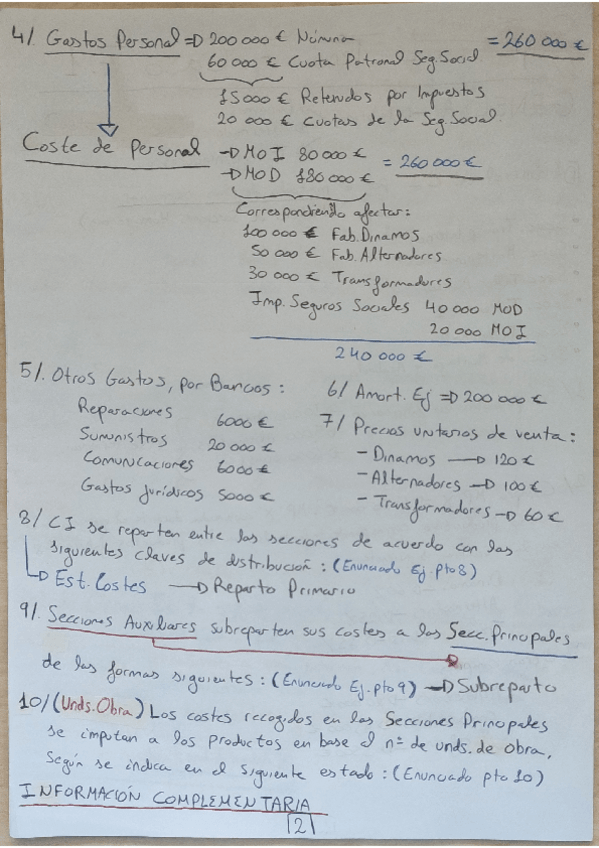 4/. Gastos Personal => 200 000 € Nómina = 260 000 €
60 000 € Cuota Patronal Seg. Social
15 000 € Retenidos por Impuestos
20 000 € Cuotas de la Seg. Social.
Coste de Personal → MOI 80 000 € = 260 000 €
→ MOD 180 000 €
Correspondiendo afectar:
100 000 € Fab. Dinamos
50 000 € Fab. Alternadores
30 000 € Transformadores
Imp. Seguros Sociales 40 000 MOD
20 000 MOI
240 000 €
5/. Otros Gastos, por Bancos:
Reparaciones 6000 €
Suministros 20 000 €
Comunicaciones 6000 €
Gastos jurídicos 5000 €
6/ Amort. Ej => 200 000 €
7/ Precios unitarios de venta:
- Dinamos → 120 €
- Alternadores → 100 €
- Transformadores → 60 €
8/ CI se reparten entre las secciones de acuerdo con las
siguientes claves de distribución: (Enunciado Ej. pto 8)
→ Est. Costes → Reparto Primario
9/. Secciones Auxiliares subreparten sus costes a las Secc. Principales
de las formas siguientes: (Enunciado Ej. pto 9) → Subreparto
10/ (Unds. Obra) Los costes recogidos en las Secciones Principales
se imputan a los productos en base al nº de unds. de obra,
Según se indica en el siguiente estado: (Enunciado pto 10)
INFORMACIÓN COMPLEMENTARIA
2